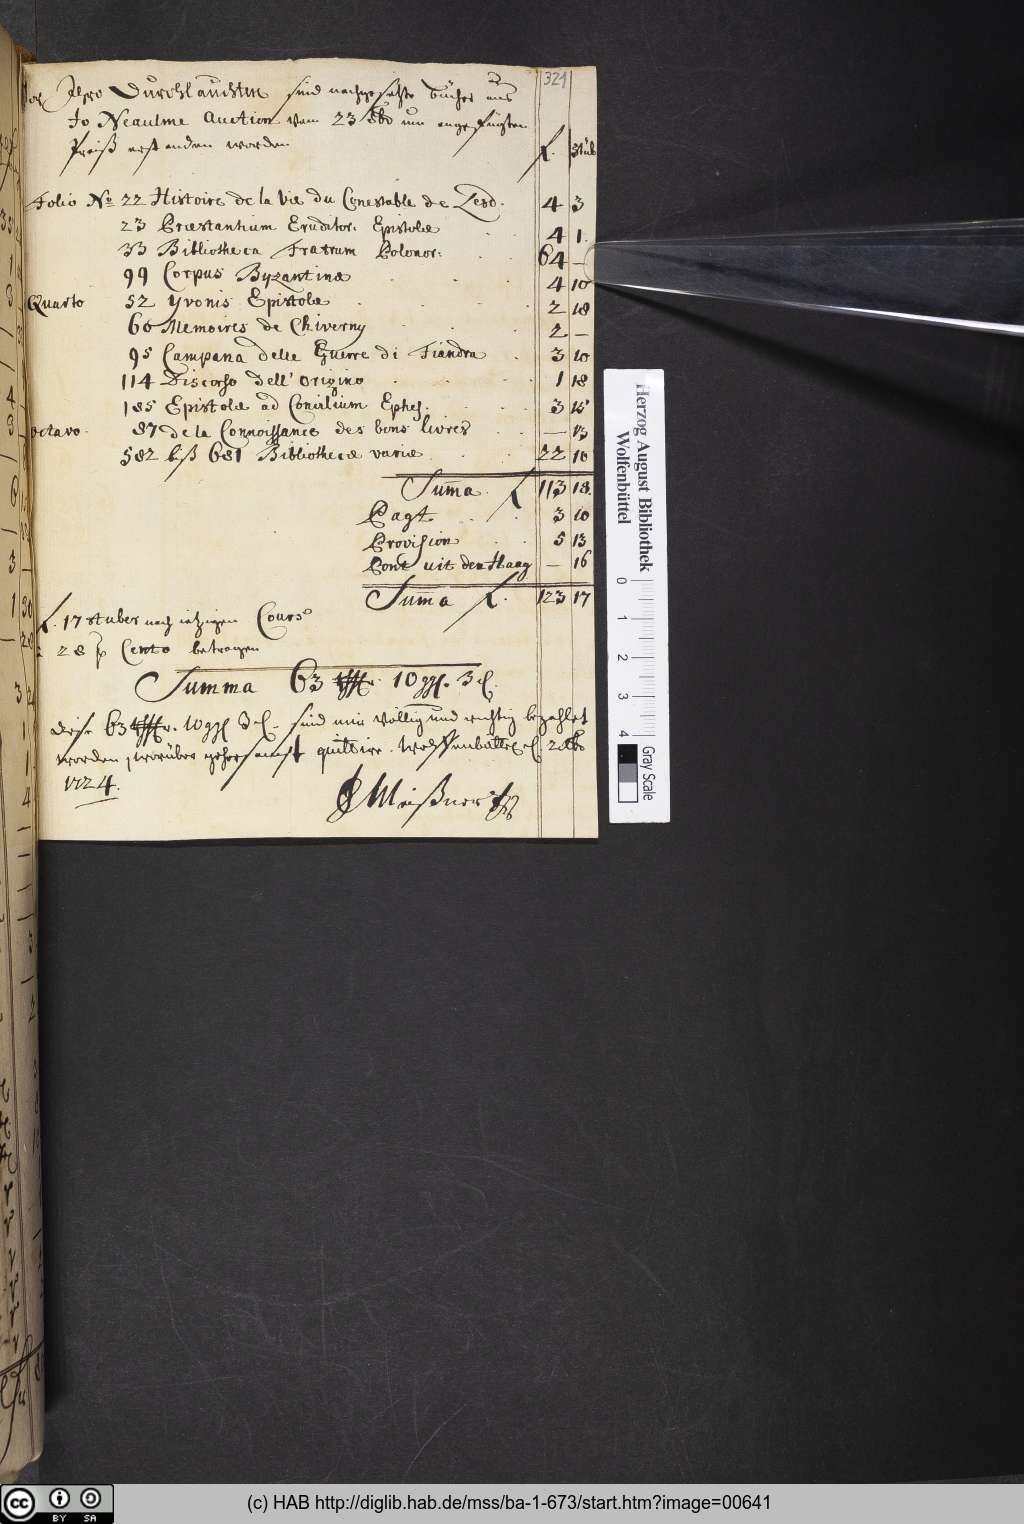 321
Vor Ihro Durchlauchten sind nachgesetzte Bücher aus
to Neaulme Auction vom 23 8bo um angefügten
Preiß erstanden worden
f. Stüb
Folio No 22 Histoire de la Vie du Conestable de Lesd. 4 3
23 Præstantium Eruditor. Epistolæ 4 1.
33 Bibliotheca Fratrum Polonor. 64 —
99 Corpus Byzantinæ 4 10
Quarto 52 Yvonis Epistolæ 2 18
60 Memoires de Chiverny 2 —
95 Campana delle Guerre di Fiandra 3 10
114 Discorso dell' Origino 1 18
185 Epistolæ ad Concilium Ephes. 3 15
Octavo 87 de la Connoissance des bons livres — 13
582 biß 681 Bibliothecæ variæ 22 10
Summa. f 113 18.
Pagt 3 10
Provision 5 13
Pont uit den Haag — 16
Summa f. 123 17
f. 17 stuber nach itzigen Cours
28 p Cento betragen
Summa 63 10 ggl. 3 d.
diese 63 10 ggl 3 d. sind mir völlig und richtig bezahlet
worden, worüber gehorsamst quittire. Wolffenbüttel d. 2
1724.
Meißner
Herzog August Bibliothek
Wolfenbüttel
0 1 2 3 4
Gray Scale
cc BY SA
(c) HAB http://diglib.hab.de/mss/ba-1-673/start.htm?image=00641